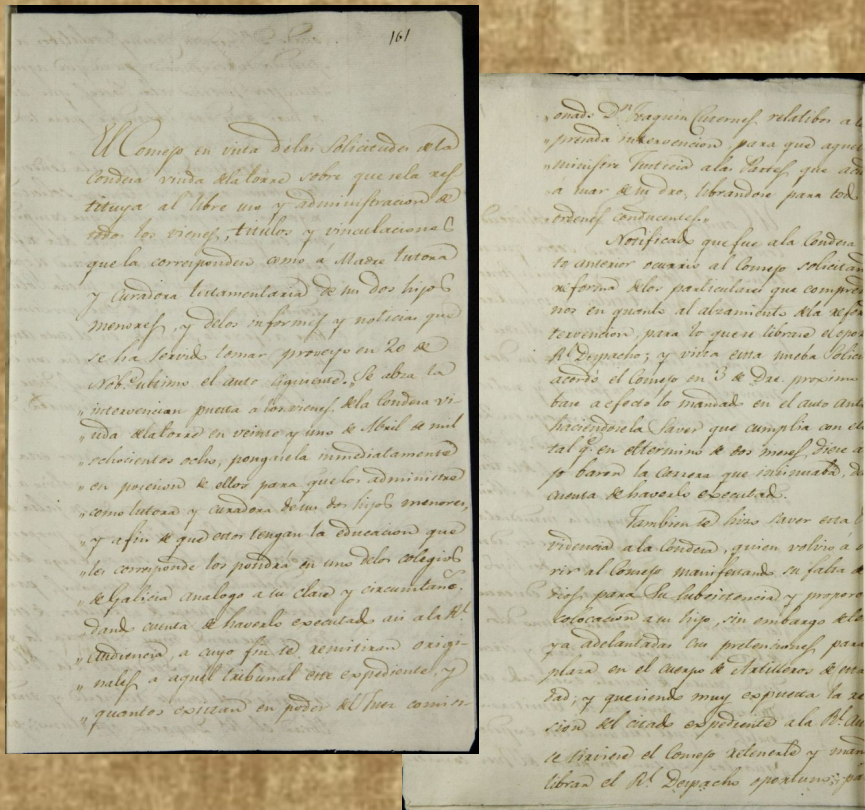 161
El Consejo en vista delas Solicitudes dela
Condesa viuda dela torre sobre que sela res
tituya al libre uso y administracion de
todos los vienes, titulos y vinculaciones
que la corresponden como á Madre tutora
y curadora testamentaria de sus dos hijos
menores, y delos informes y noticias que
se ha servido tomar, proveyo en 20 de
Nobre. ultimo el auto siguiente. Se alza la
intervencion puesta á los vienes dela Condesa vi-
uda dela torre en veinte y uno de Abril de mil
ochocientos ocho, pongasela inmediatamente
en posesion de ellos para que los administre
como tutora y curadora de sus dos hijos menores,
y a fin de que estos tengan la educacion que
les corresponde los pondrá en uno delos colegios
de Galicia analogo a su clase y circunstans.
dando cuenta de haverlo executado asi a la Rl.
Audiencia, a cuyo fin se remitiran origi-
nales a aquel tribunal este expediente, y
quantos existan en poder del Juez comisi-
onado Dn. Joaquin Cisernes relatibos a la
presada intervencion, para que aquel
ministre Justicia a las Partes que
á usar de su dro, librandose para todo
ordenes conducentes.
Notificado que fue a la Condesa
to anterior ocurrio al Consejo solicitan
reforma delos particulares que compre
nos en quanto al alzamiento dela
tervencion, para lo que se librase el opor
Rl. Despacho; y vista esta nueba Solici
acordó el Consejo en 3 de Dre. proximo
base a efecto lo mandado en el auto ante
haciendosela Saver que cumplia con el
tal qe. en el termino de dos meses, diese a
jo baron la Carrera que insinuaba, d
cuenta de haverlo executado.
Tambien se hizo saver esta
videncia a la Condesa, quien volvió a
rir al Consejo manifestando su falta de
dios para su subsistencia y propor
colocacion a su hijo, sin embargo de
ya adelantadas sus pretensiones para
plaza en el cuerpo de Artilleros de esta
tad; y queriendo muy expuesta la re
sion del citado expediente a la Rl. Au
se sirviese el Consejo retenerle y man
librar el Rl. Despacho oportuno; pa